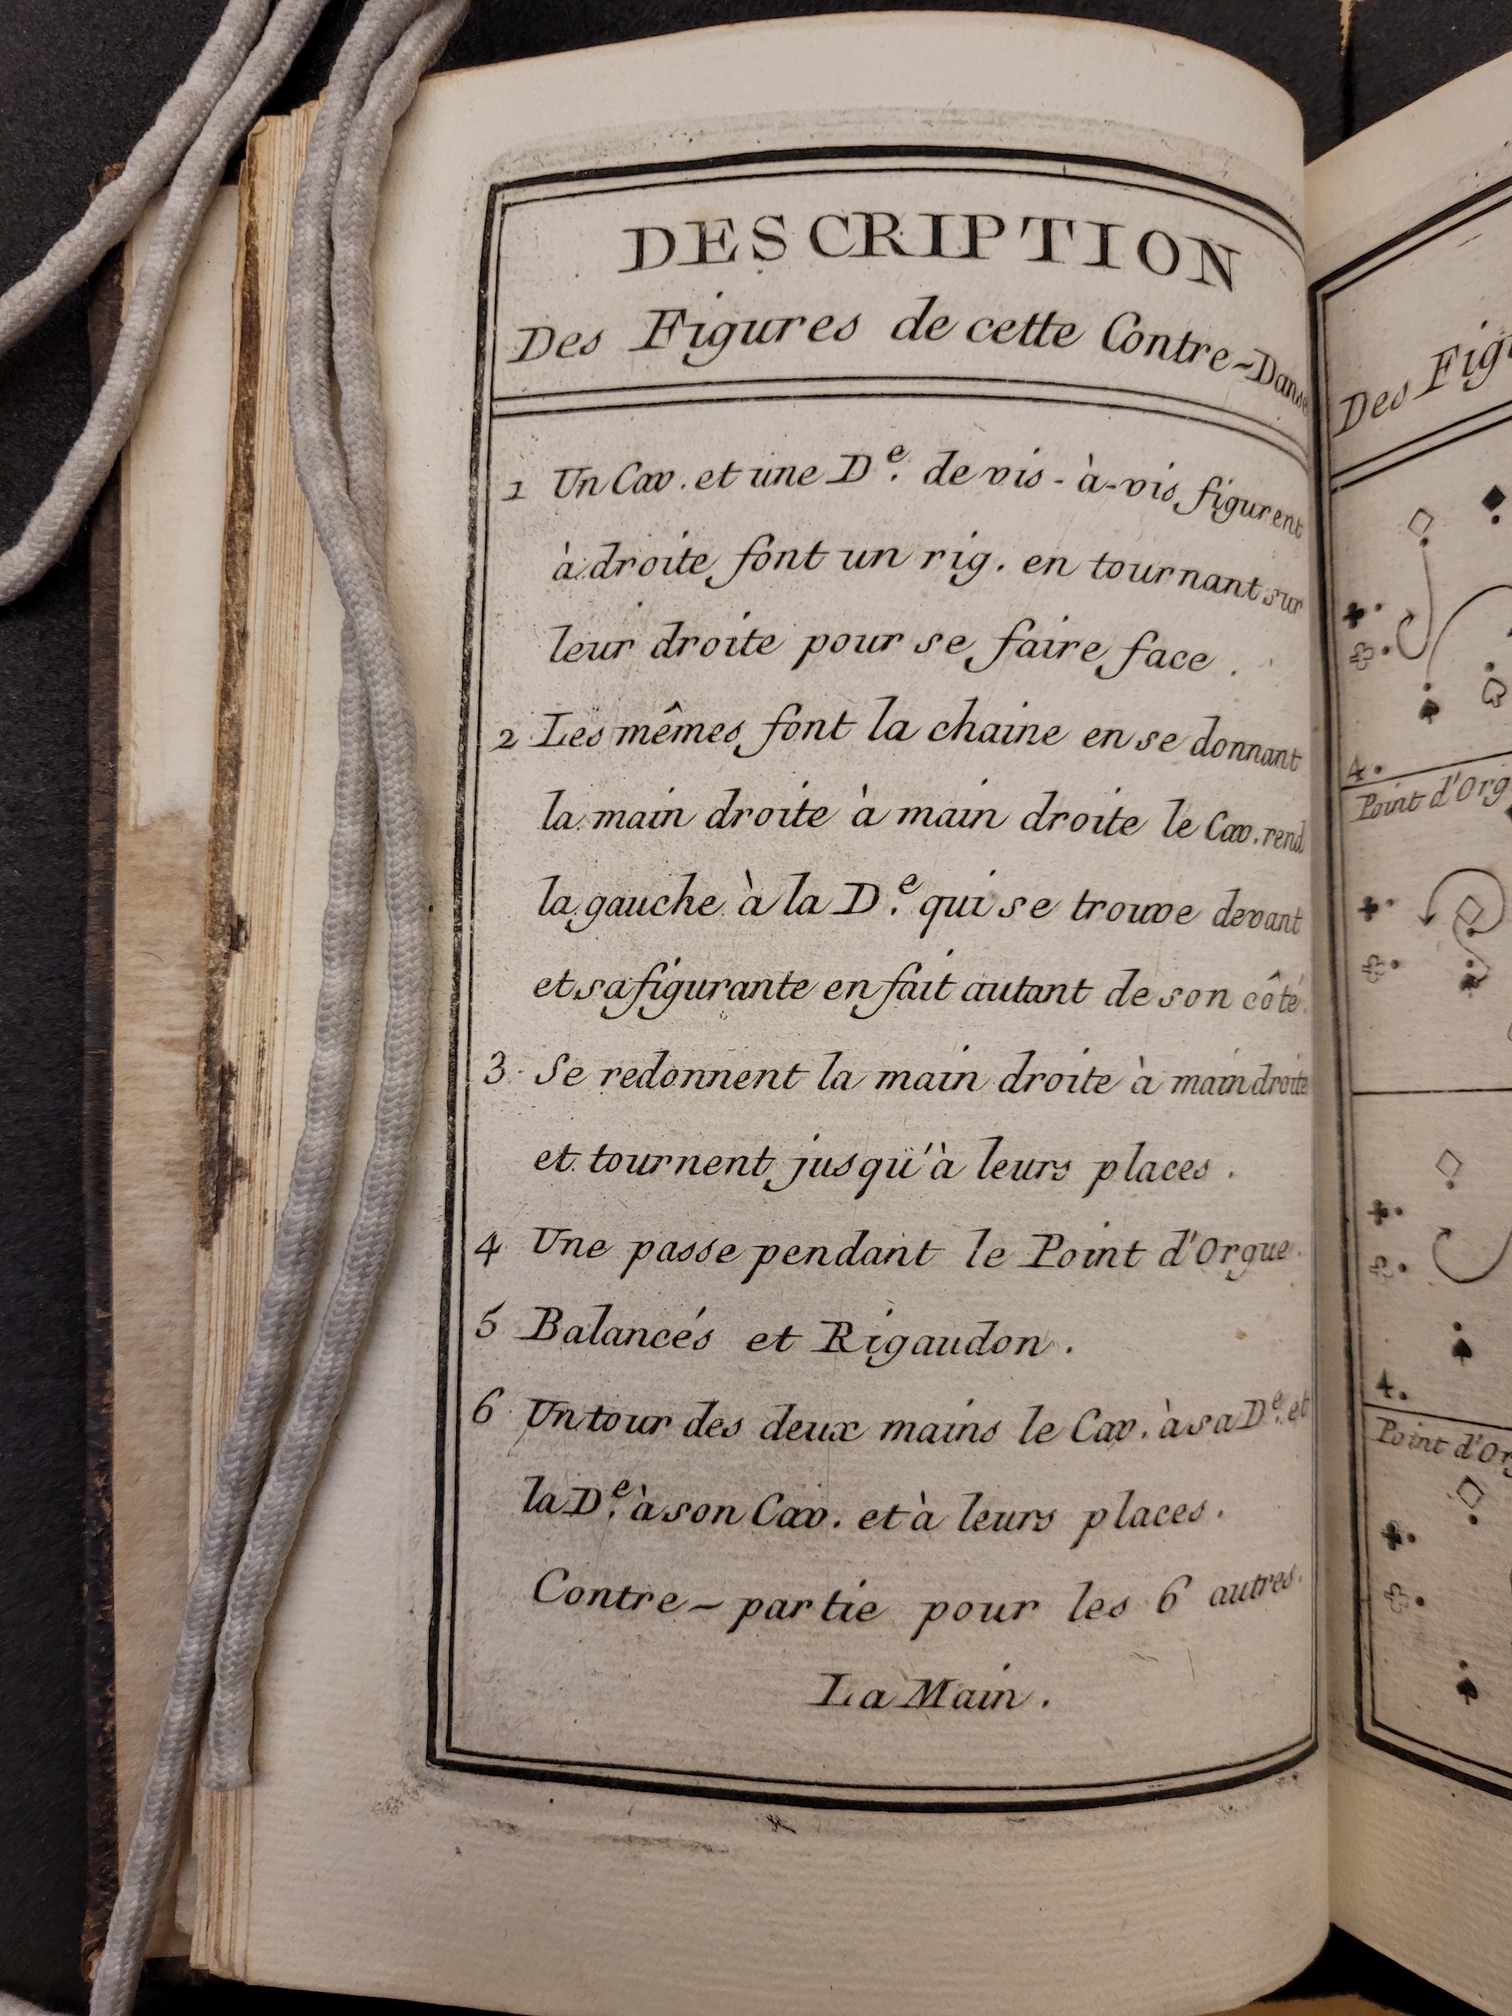 DESCRIPTION
Des Figures de cette Contre-Danse
1 Un Cav. et une D.e de vis-à-vis figurent
à droite font un rig. en tournant sur
leur droite pour se faire face.
2 Les mêmes font la chaine en se donnant
la main droite à main droite le Cav. rend
la gauche à la D.e qui se trouve devant
et sa figurante en fait autant de son côté.
3 Se redonnent la main droite à main droite
et tournent jusqu'à leurs places.
4 Une passe pendant le Point d'Orgue.
5 Balancés et Rigaudon.
6 Un tour des deux mains le Cav. à sa D.e et
la D.e à son Cav. et à leurs places.
Contre-partie pour les 6 autres.
La Main.
Des
4.
Point
4.
Point